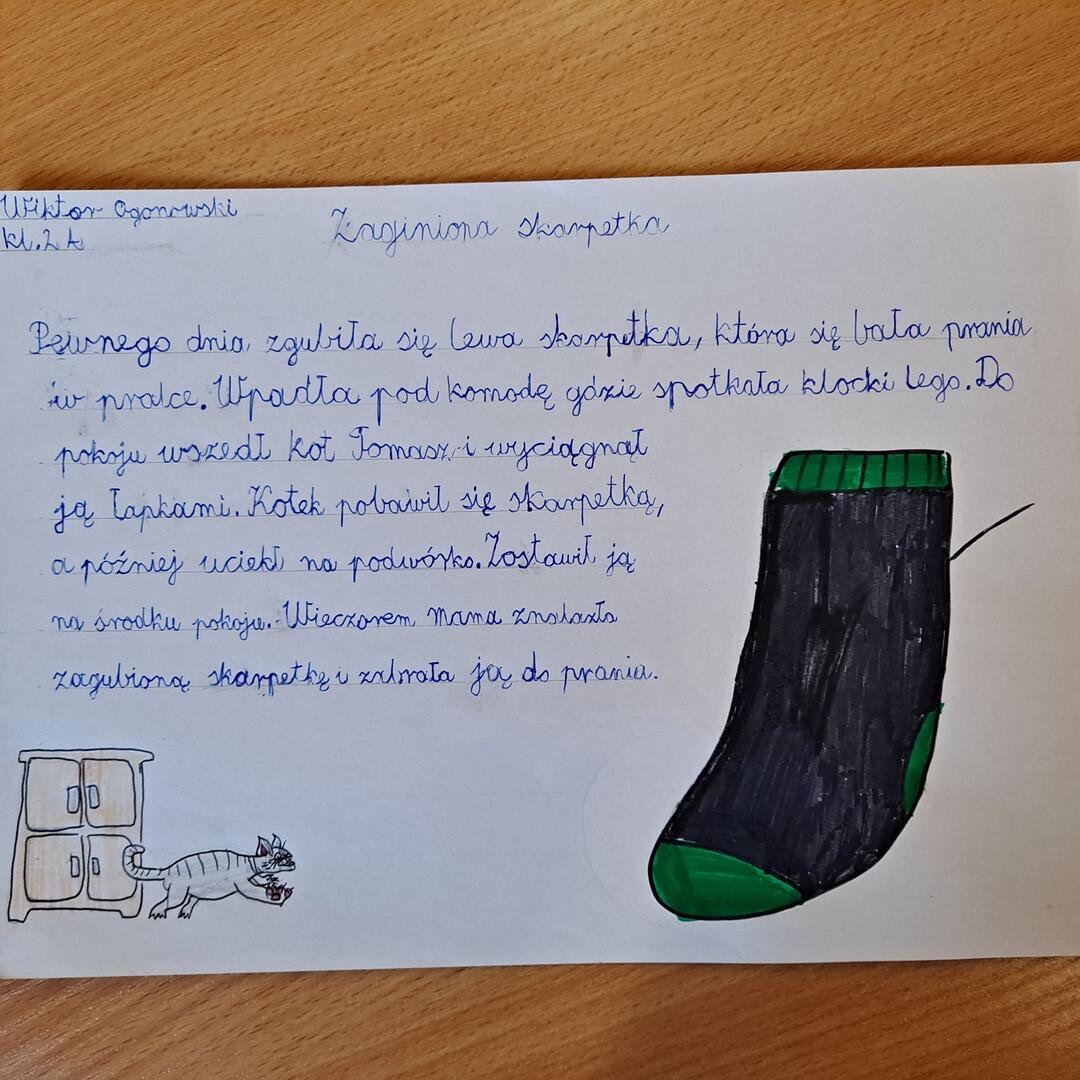 Wiktor Ogonowski
kl. 2 A
Zaginiona skarpetka
Pewnego dnia zgubiła się lewa skarpetka, która się bała prania
w pralce. Wpadła pod komodę gdzie spotkała klocki lego. Do
pokoju wszedł kot Tomasz i wyciągnął
ją łapkami. Kotek pobawił się skarpetką,
a później uciekł na podwórko. Zostawił ją
na środku pokoju. Wieczorem mama znalazła
zagubioną skarpetkę i zabrała ją do prania.